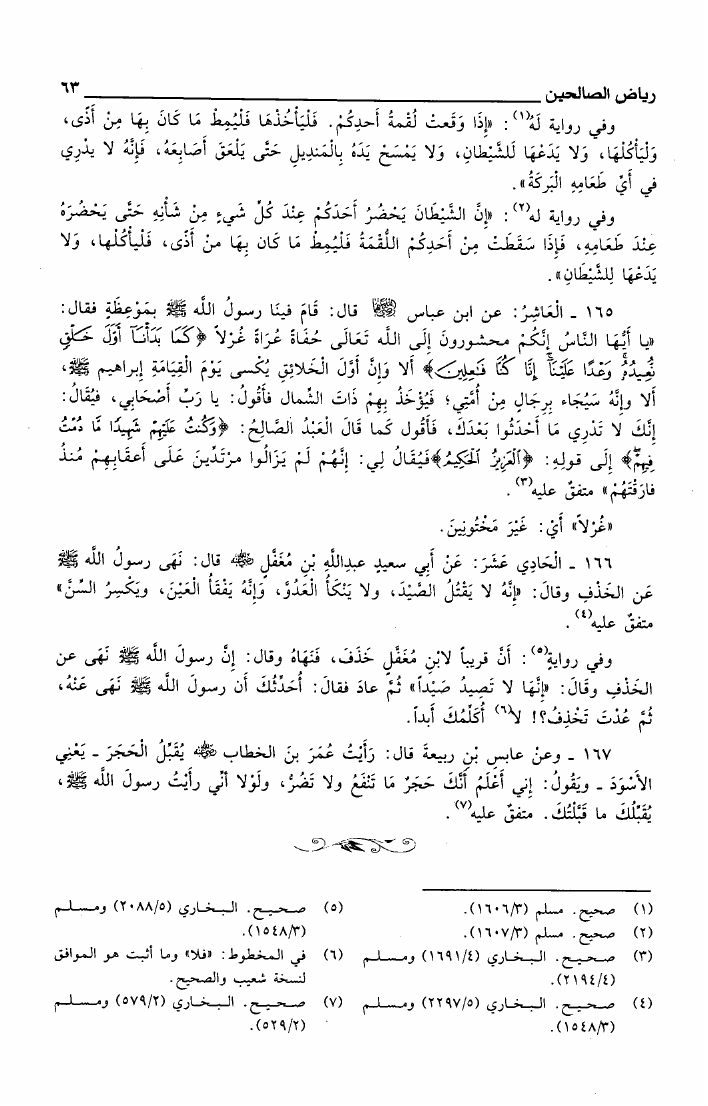 رياض الصالحين ٦٣
وفي رواية لَهُ(١): «إِذَا وَقَعتْ لُقْمةُ أَحدِكُمْ. فَلْيَأْخُذْهَا فَلْيُمِطْ مَا كَانَ بِهَا مِنْ أَذًى،
وَلْيَأْكُلْهَا، وَلا يَدَعْهَا لَلشَّيْطانِ، وَلا يَمْسَحْ يَدَهُ بِالْمَندِيلِ حَتَّى يَلْعَقَ أَصَابِعَهُ، فَإِنَّهُ لا يدْرِي
في أَيِّ طَعَامِهِ الْبَرَكَةُ».
وفي رواية له(٢): «إِنَّ الشَّيْطَانَ يَحْضُرُ أَحَدَكُمْ عِنْدَ كُلِّ شَيءٍ مِنْ شَأْنِهِ حَتَّى يَحْضُرَهُ
عِنْدَ طَعَامِهِ، فَإِذَا سَقَطَتْ مِنْ أَحَدِكُمُ اللُّقْمَةُ فَلْيُمِطْ مَا كَان بِهَا منْ أَذًى، فَلْيأْكُلْها، وَلا
يَدَعْهَا لِلشَّيْطَانِ».
١٦٥ - الْعَاشِرُ: عن ابن عباس رضي الله عنهما قال: قَامَ فينَا رسولُ اللَّه ﷺ بِمَوْعِظَةٍ فقال:
«يا أَيُّهَا النَّاسُ إِنَّكُمْ محشورونَ إِلَى اللَّه تَعَالَى حُفَاةً عُرَاةً غُرْلاً ﴿كَمَا بَدَأْنَا أَوَّلَ خَلْقٍ
نُّعِيدُهُ وَعْدًا عَلَيْنَا إِنَّا كُنَّا فَاعِلِينَ﴾ أَلا وَإِنَّ أَوَّلَ الْخَلائِقِ يُكْسى يَوْمَ الْقِيَامَةِ إِبراهيم ﷺ،
أَلا وإِنَّهُ سَيُجَاء بِرِجَالٍ مِنْ أُمَّتِي؛ فَيُؤْخَذُ بِهِمْ ذَاتَ الشِّمال فَأَقُولُ: يا رَبِّ أَصْحَابِي، فيُقَالُ:
إِنَّكَ لا تَدْرِي مَا أَحْدَثُوا بَعْدَكَ، فَأَقول كَما قَالَ الْعَبْدُ الصَّالِحُ: ﴿وَكُنتُ عَلَيْهِمْ شَهِيدًا مَّا دُمْتُ
فِيهِمْ﴾ إِلَى قولِهِ: ﴿الْعَزِيزُ الْحَكِيمُ﴾ فَيُقَالُ لِي: إِنَّهُمْ لَمْ يَزَالُوا مرْتَدِّينَ عَلَى أَعقَابِهِمْ مُنذُ
فارَقْتَهُمْ» متفقٌ عليه(٣).
«غُرْلاً» أَيْ: غَيْرَ مَخْتُونِينَ.
١٦٦ - الْحَادِي عَشَرَ: عَنْ أَبِي سعيدٍ عبدِاللَّهِ بْنِ مُغَفَّلٍ رضي الله عنه قال: نَهَى رسولُ اللَّه ﷺ
عَن الخَذْفِ وقالَ: «إِنَّهُ لا يَقْتُلُ الصَّيْدَ، ولا يَنْكَأُ الْعَدُوَّ، وَإِنَّهُ يَفْقَأُ الْعَيْنَ، ويَكْسِرُ السِّنَّ»
متفقٌ عليه(٤).
وفي روايةٍ(٥): أَنَّ قريباً لابْنِ مُغَفَّلٍ خَذَفَ، فَنَهَاهُ وقال: إِنَّ رسولَ اللَّه ﷺ نَهَى عن
الخَذْفِ وقَالَ: «إِنَّهَا لا تَصِيدُ صَيْداً» ثُمَّ عادَ فقالَ: أُحَدِّثُكَ أن رسولَ اللَّه ﷺ نَهَى عَنْهُ،
ثُمَّ عُدْتَ تَخْذِفُ؟! لا(٦) أُكَلِّمُكَ أَبداً.
١٦٧ - وعنْ عابسِ بْنِ ربيعةَ قال: رَأَيْتُ عُمَرَ بنَ الخطاب رضي الله عنه يُقَبِّلُ الْحَجَرَ - يَعْنِي
الأَسْوَدَ - ويَقُولُ: إِني أَعْلَمُ أَنَّكَ حَجَرٌ مَا تَنْفَعُ ولا تَضُرُّ، ولَوْلا أَنِّي رأَيْتُ رسولَ اللَّه ﷺ،
يُقَبِّلُكَ ما قَبَّلْتُكَ. متفقٌ عليه(٧).
(١) صحيح. مسلم (١٦٠٦/٣).
(٢) صحيح. مسلم (١٦٠٧/٣).
(٣) صحيح. البخاري (١٦٩١/٤) ومسلم
(٢١٩٤/٤).
(٤) صحيح. البخاري (٢٢٩٧/٥) ومسلم
(١٥٤٨/٣).
(٥) صحيح. البخاري (٢٠٨٨/٥) ومسلم
(١٥٤٨/٣).
(٦) في المخطوط: «فلا» وما أثبت هو الموافق
لنسخة شعيب والصحيح.
(٧) صحيح. البخاري (٥٧٩/٢) ومسلم
(٥٢٩/٢).